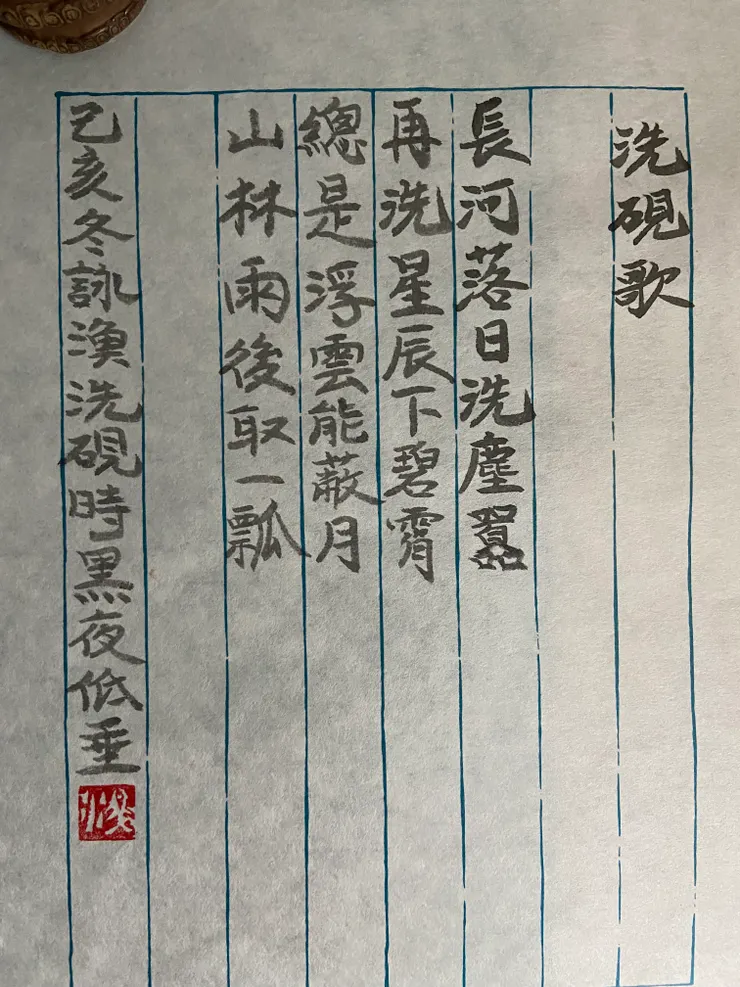 洗硯歌
長河落日洗塵囂
再洗星辰下碧霄
總是浮雲能蔽月
山林雨後取一瓢
己亥冬詠漁洗硯時黑夜低垂